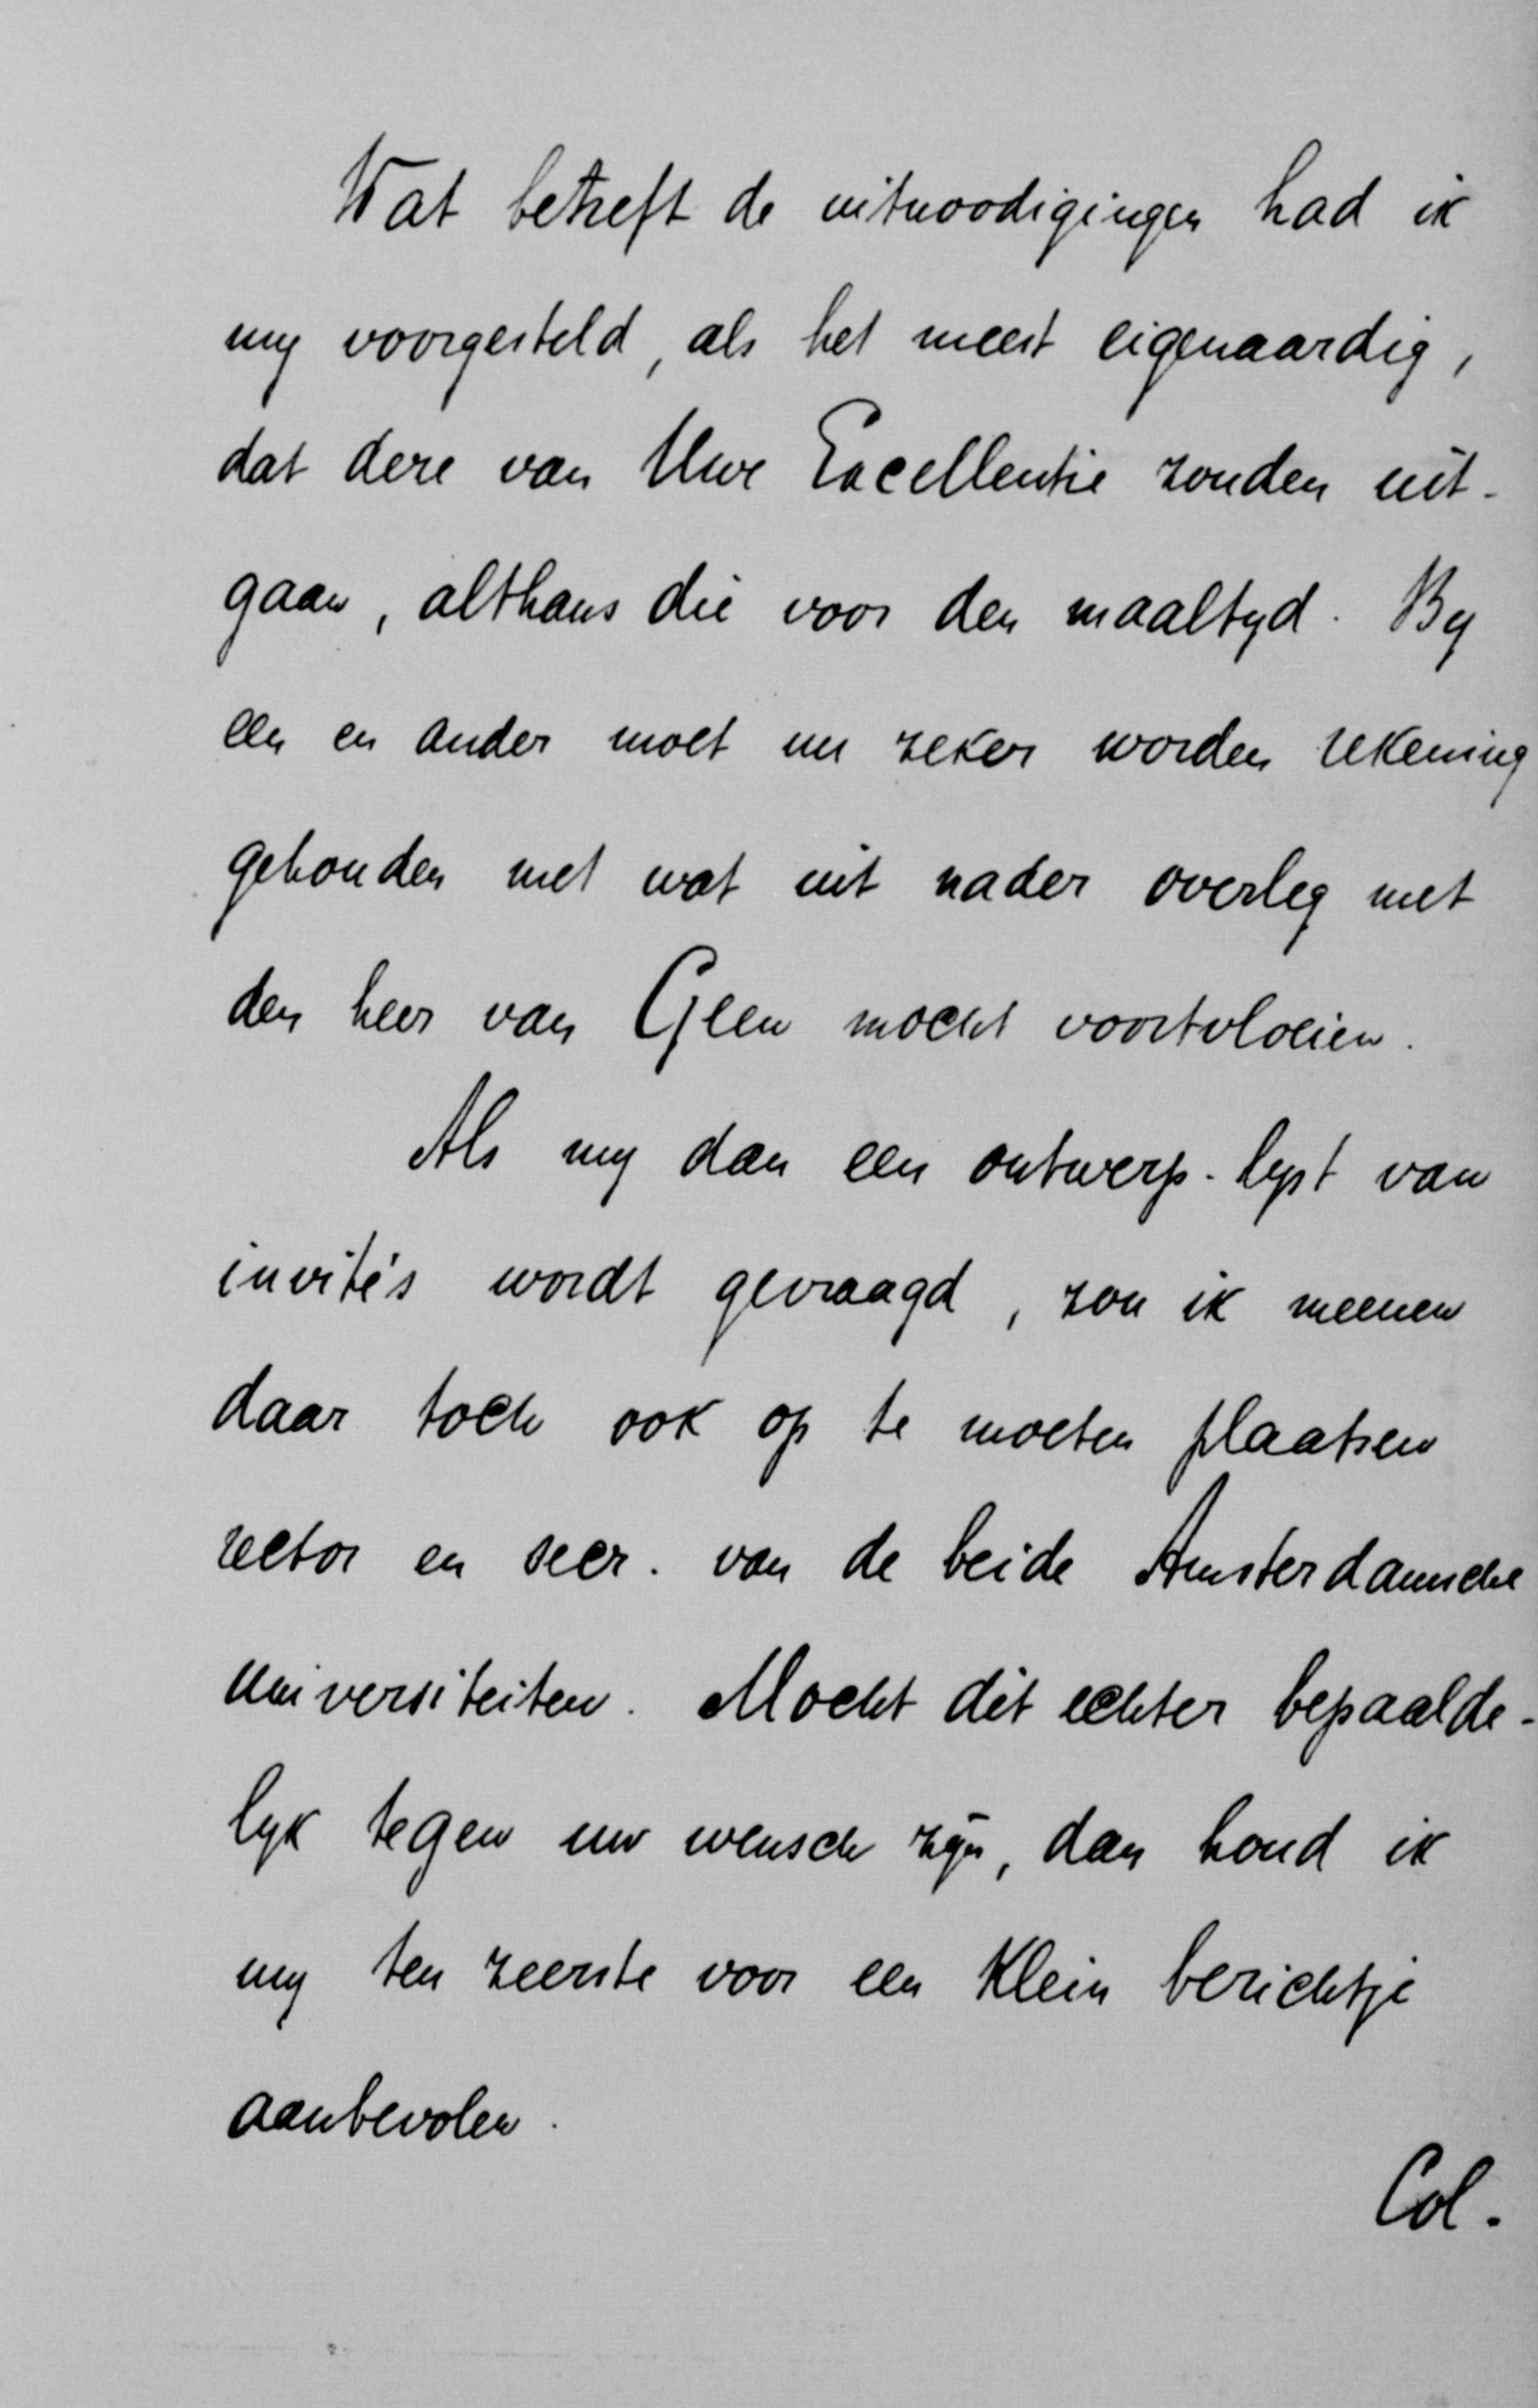 Wat betreft de uitnoodigingen had ik
my voorgesteld, als het meest eigenaardig,
dat deze van Uwe Excellentie zouden uit-
gaan, althans die voor den maaltyd. By
een en ander moet nu zeker worden rekening
gehouden met wat uit nader overleg met
den heer van Geen mocht voortvloeien.
Als my dan een ontwerp-lyst van
invité's wordt gevraagd, zou ik meenen
daar toch ook op te moeten plaatsen
rector en secr. van de beide Amsterdamsche
Universiteiten. Mocht dit echter bepaalde-
lyk tegen uw wensch zyn, dan houd ik
my ten zeerste voor een klein berichtje
aanbevolen.
Col.